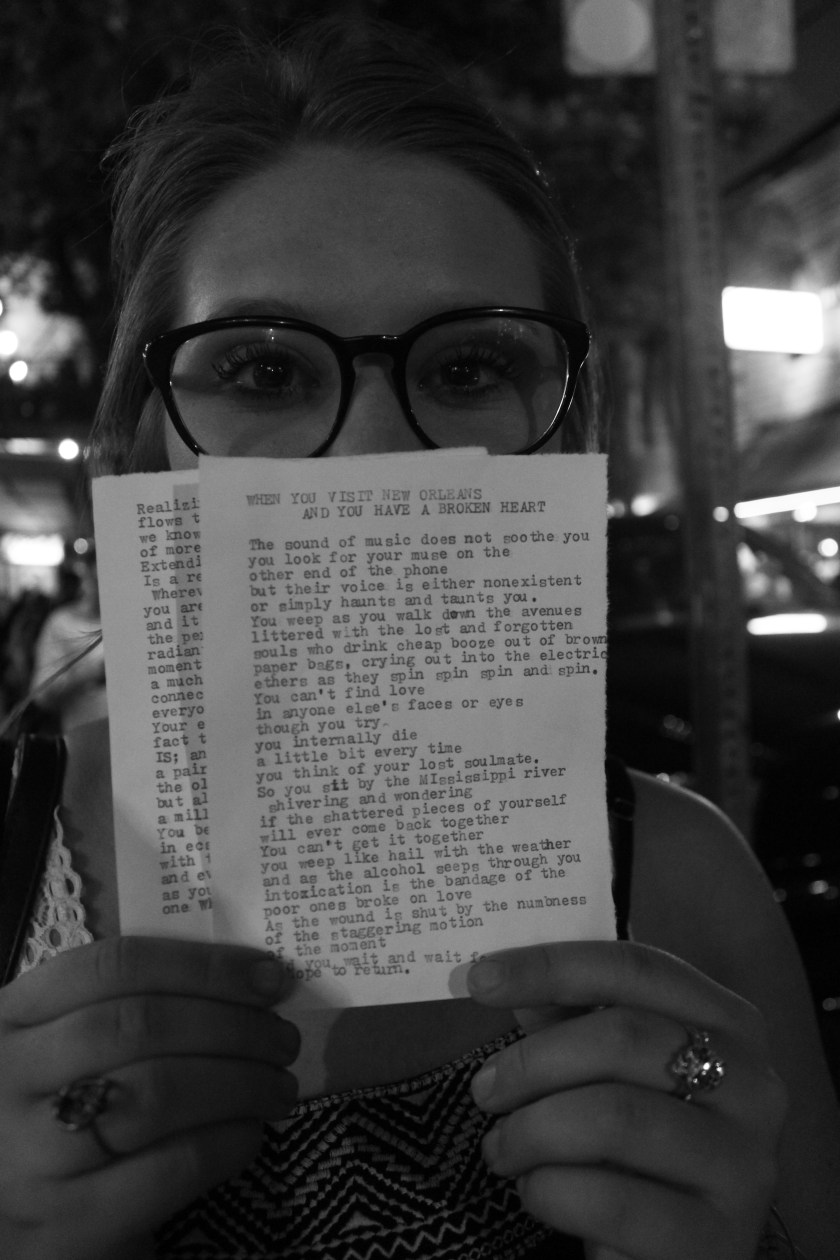 Realizi
flows t
we know
of more
Extendi
Is a re
Wherev
you are
and it
the pe
radian
moment
a much
connec
everyo
Your e
fact t
IS; an
a pair
the ol
but al
a mill
You be
in ec
with
and ev
as you
one
WHEN YOU VISIT NEW ORLEANS
AND YOU HAVE A BROKEN HEART
The sound of music does not soothe you
you look for your muse on the
other end of the phone
but their voice is either nonexistent
or simply haunts and taunts you.
You weep as you walk down the avenues
littered with the lost and forgotten
souls who drink cheap booze out of brown
paper bags, crying out into the electric
ethers as they spin spin spin and spin.
You can't find love
in anyone else's faces or eyes
though you try-
you internally die
a little bit every time
you think of your lost soulmate.
So you sit by the MIssissippi river
shivering and wondering
if the shattered pieces of yourself
will ever come back together
You can't get it together
you weep like hail with the weather
and as the alcohol seeps through you
intoxication is the bandage of the
poor ones broke on love
As the wound is shut by the numbness
of the staggering motion
of the moment
you wait and wait
hope to return.